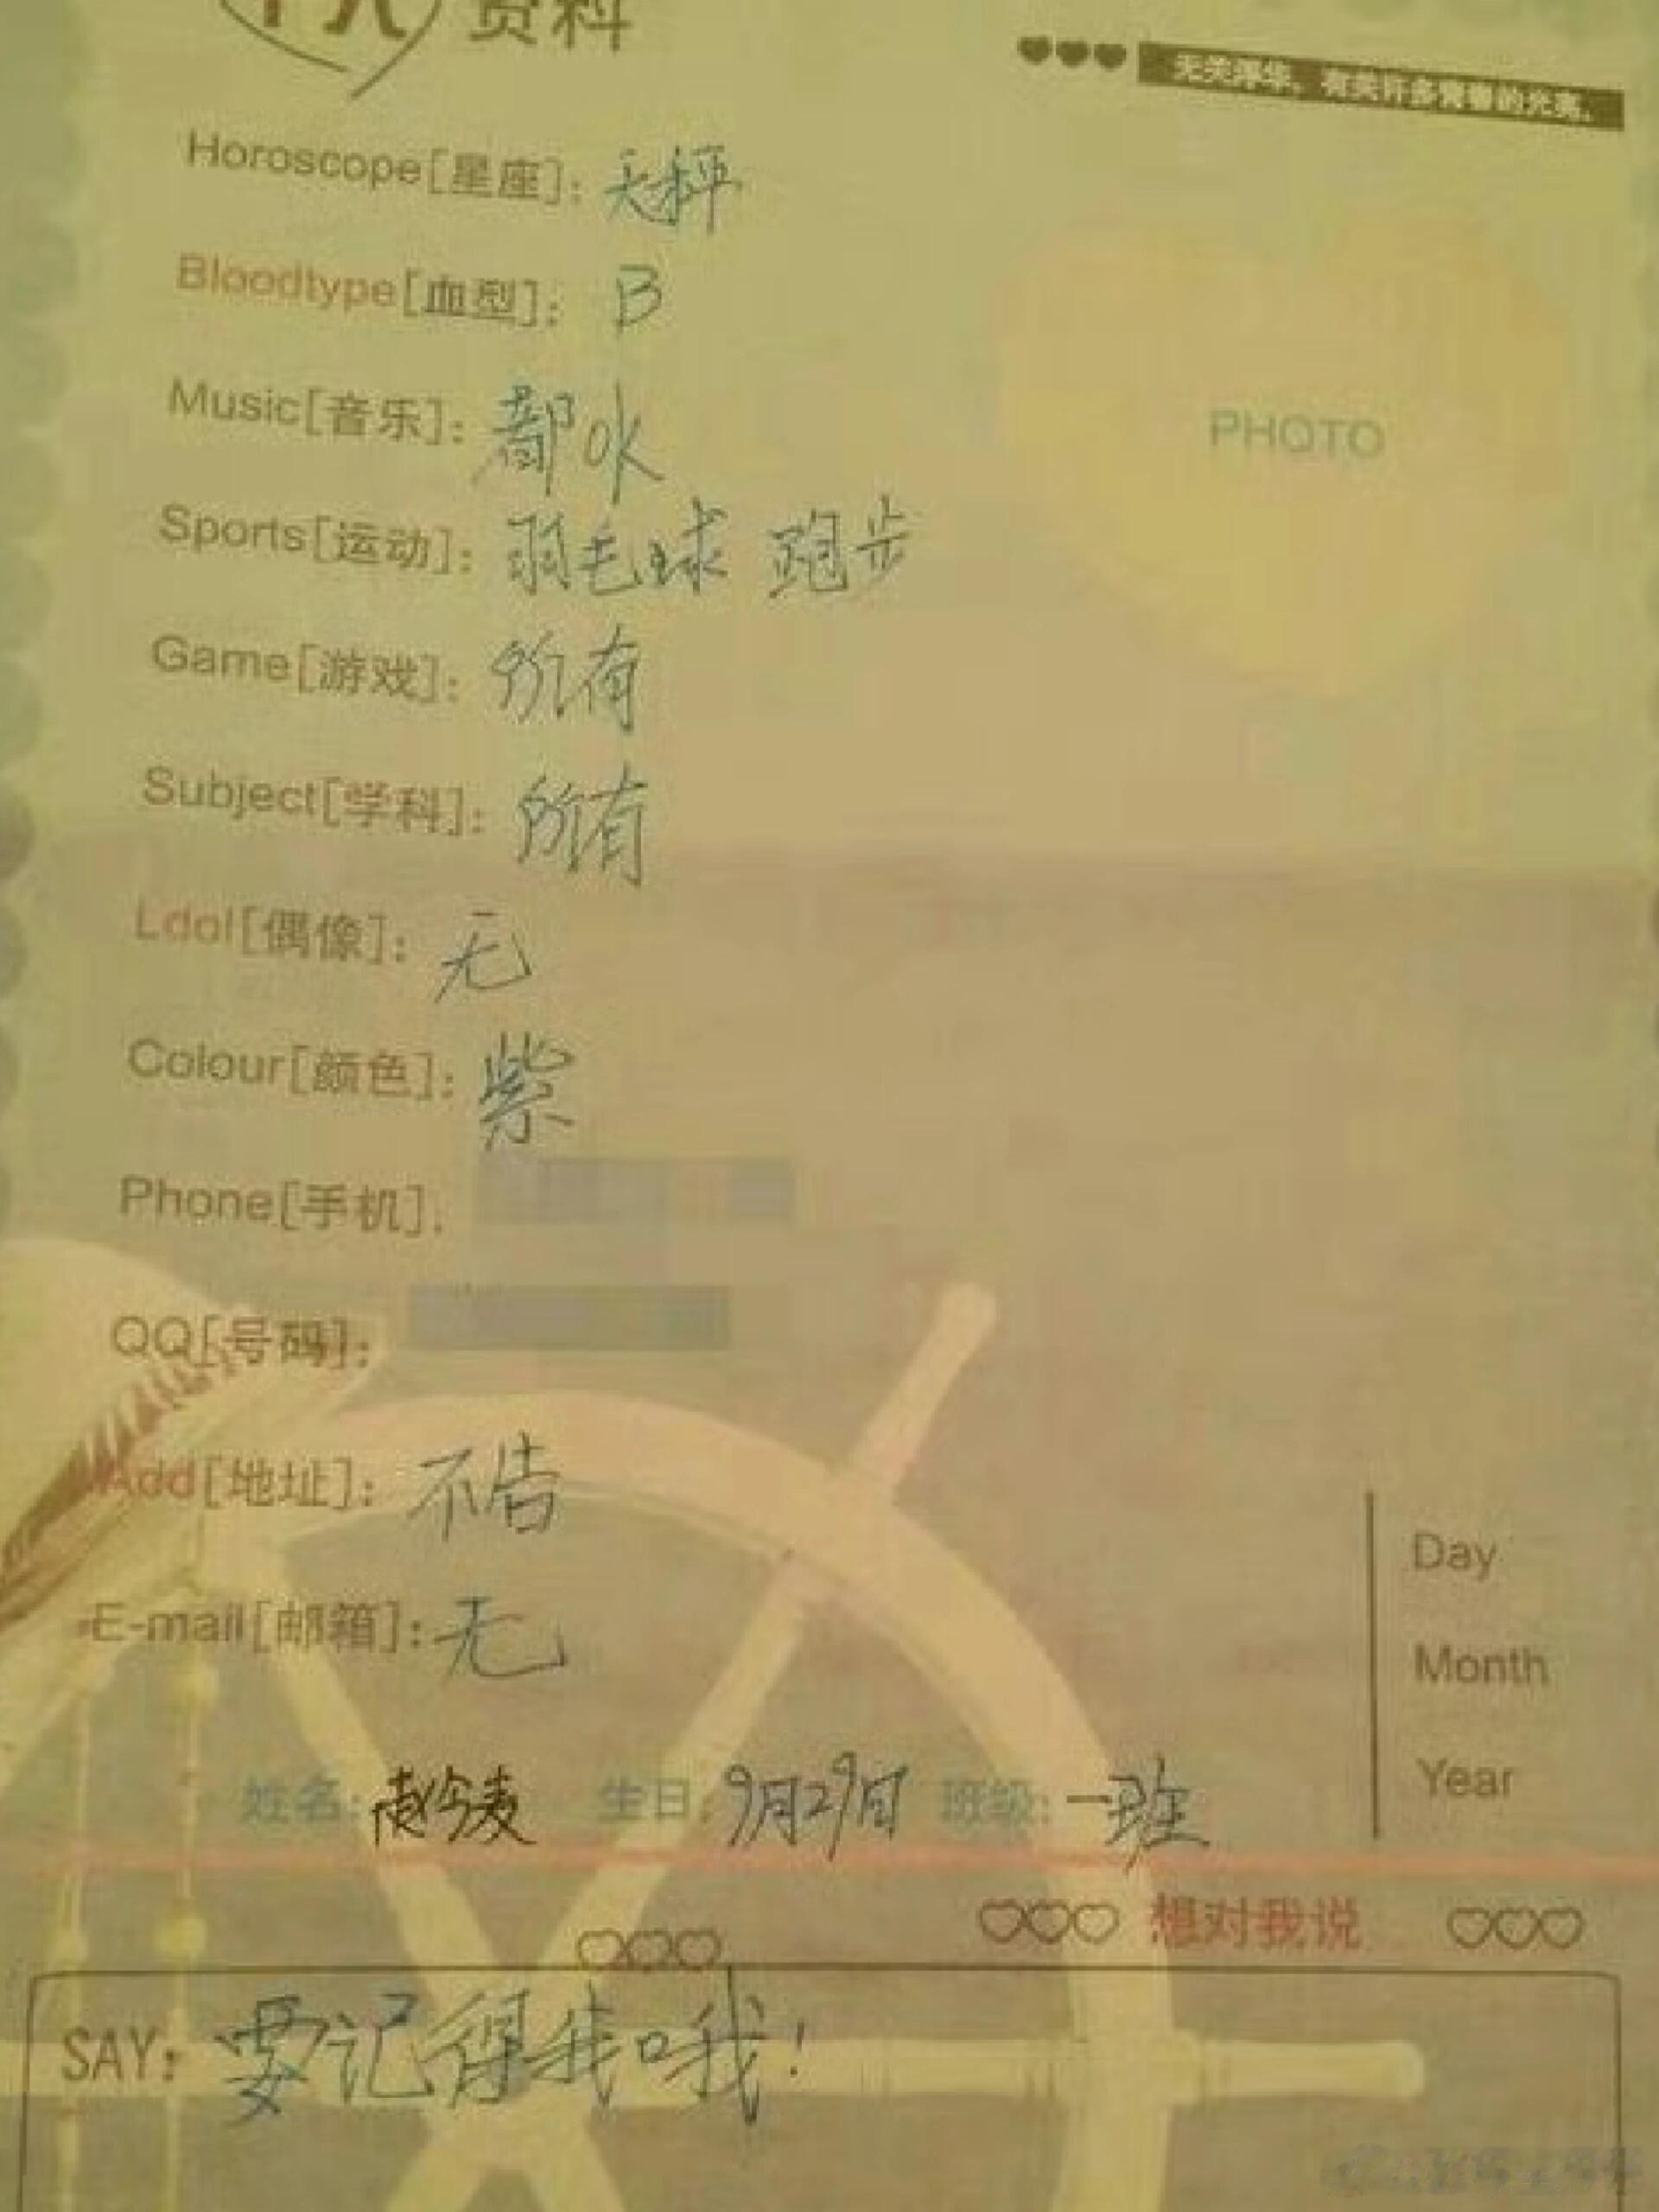 个人 资料
无关浮华，有关许多青春的光亮。
Horoscope[星座]: 天秤
Bloodtype[血型]: B
Music[音乐]: 都吹
PHOTO
Sports[运动]: 羽毛球 跑步
Game[游戏]: 所有
Subject[学科]: 所有
Ldol[偶像]: 无
Colour[颜色]: 紫
Phone[手机]:
QQ[号码]:
Add[地址]: 不告
E-mail[邮箱]: 无
Day
Month
Year
姓名: 赵今麦 生日: 9月29日 班级: 一班
想对我说
SAY: 要记得我哦!